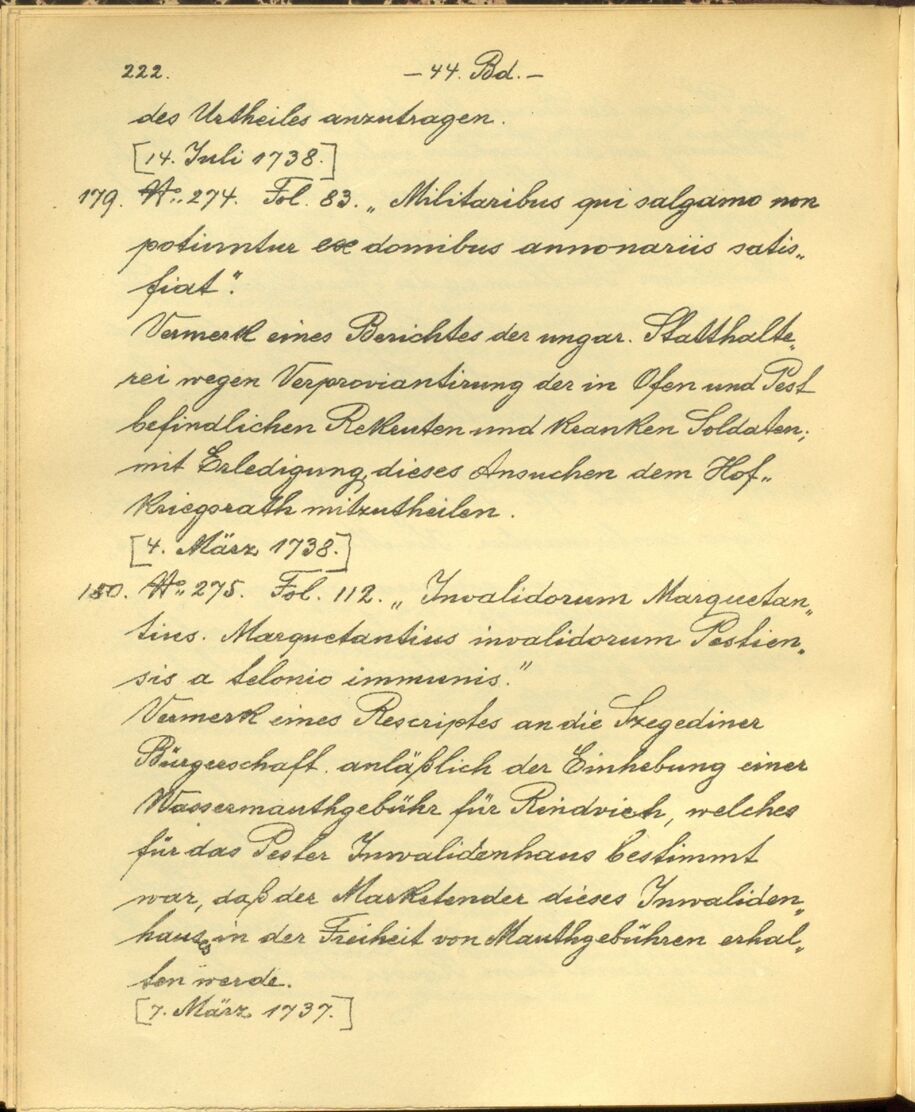 222.
– 44. Bd. –
des Urtheiles anzutragen.
[14. Juli 1738.]
179. No. 274. Fol. 83. „Militaribus qui salgamo non
potiuntur ex domibus annonariis satis„
fiat“.
Vermerk eines Berichtes der ungar. Statthalte„
rei wegen Verproviantirung der in Ofen und Pest
befindlichen Rekruten und kranken Soldaten;
mit Erledigung, dieses Ansuchen dem Hof„
kriegsrath mitzutheilen.
[4. März 1738.]
180. No. 275. Fol. 112. „Invalidorum Marquetan„
tius. Marquetantius invalidorum Pestien„
sis a telonio immunis.“
Vermerk eines Rescriptes an die Szegediner
Bürgerschaft anläßlich der Einhebung einer
Wassermauthgebühr für Rindvieh, welches
für das Pester Invalidenhaus bestimmt
war, daß der Marketender dieses Invaliden„
hauses in der Freiheit von Mauthgebühren erhal„
ten werde.
[7. März 1737.]